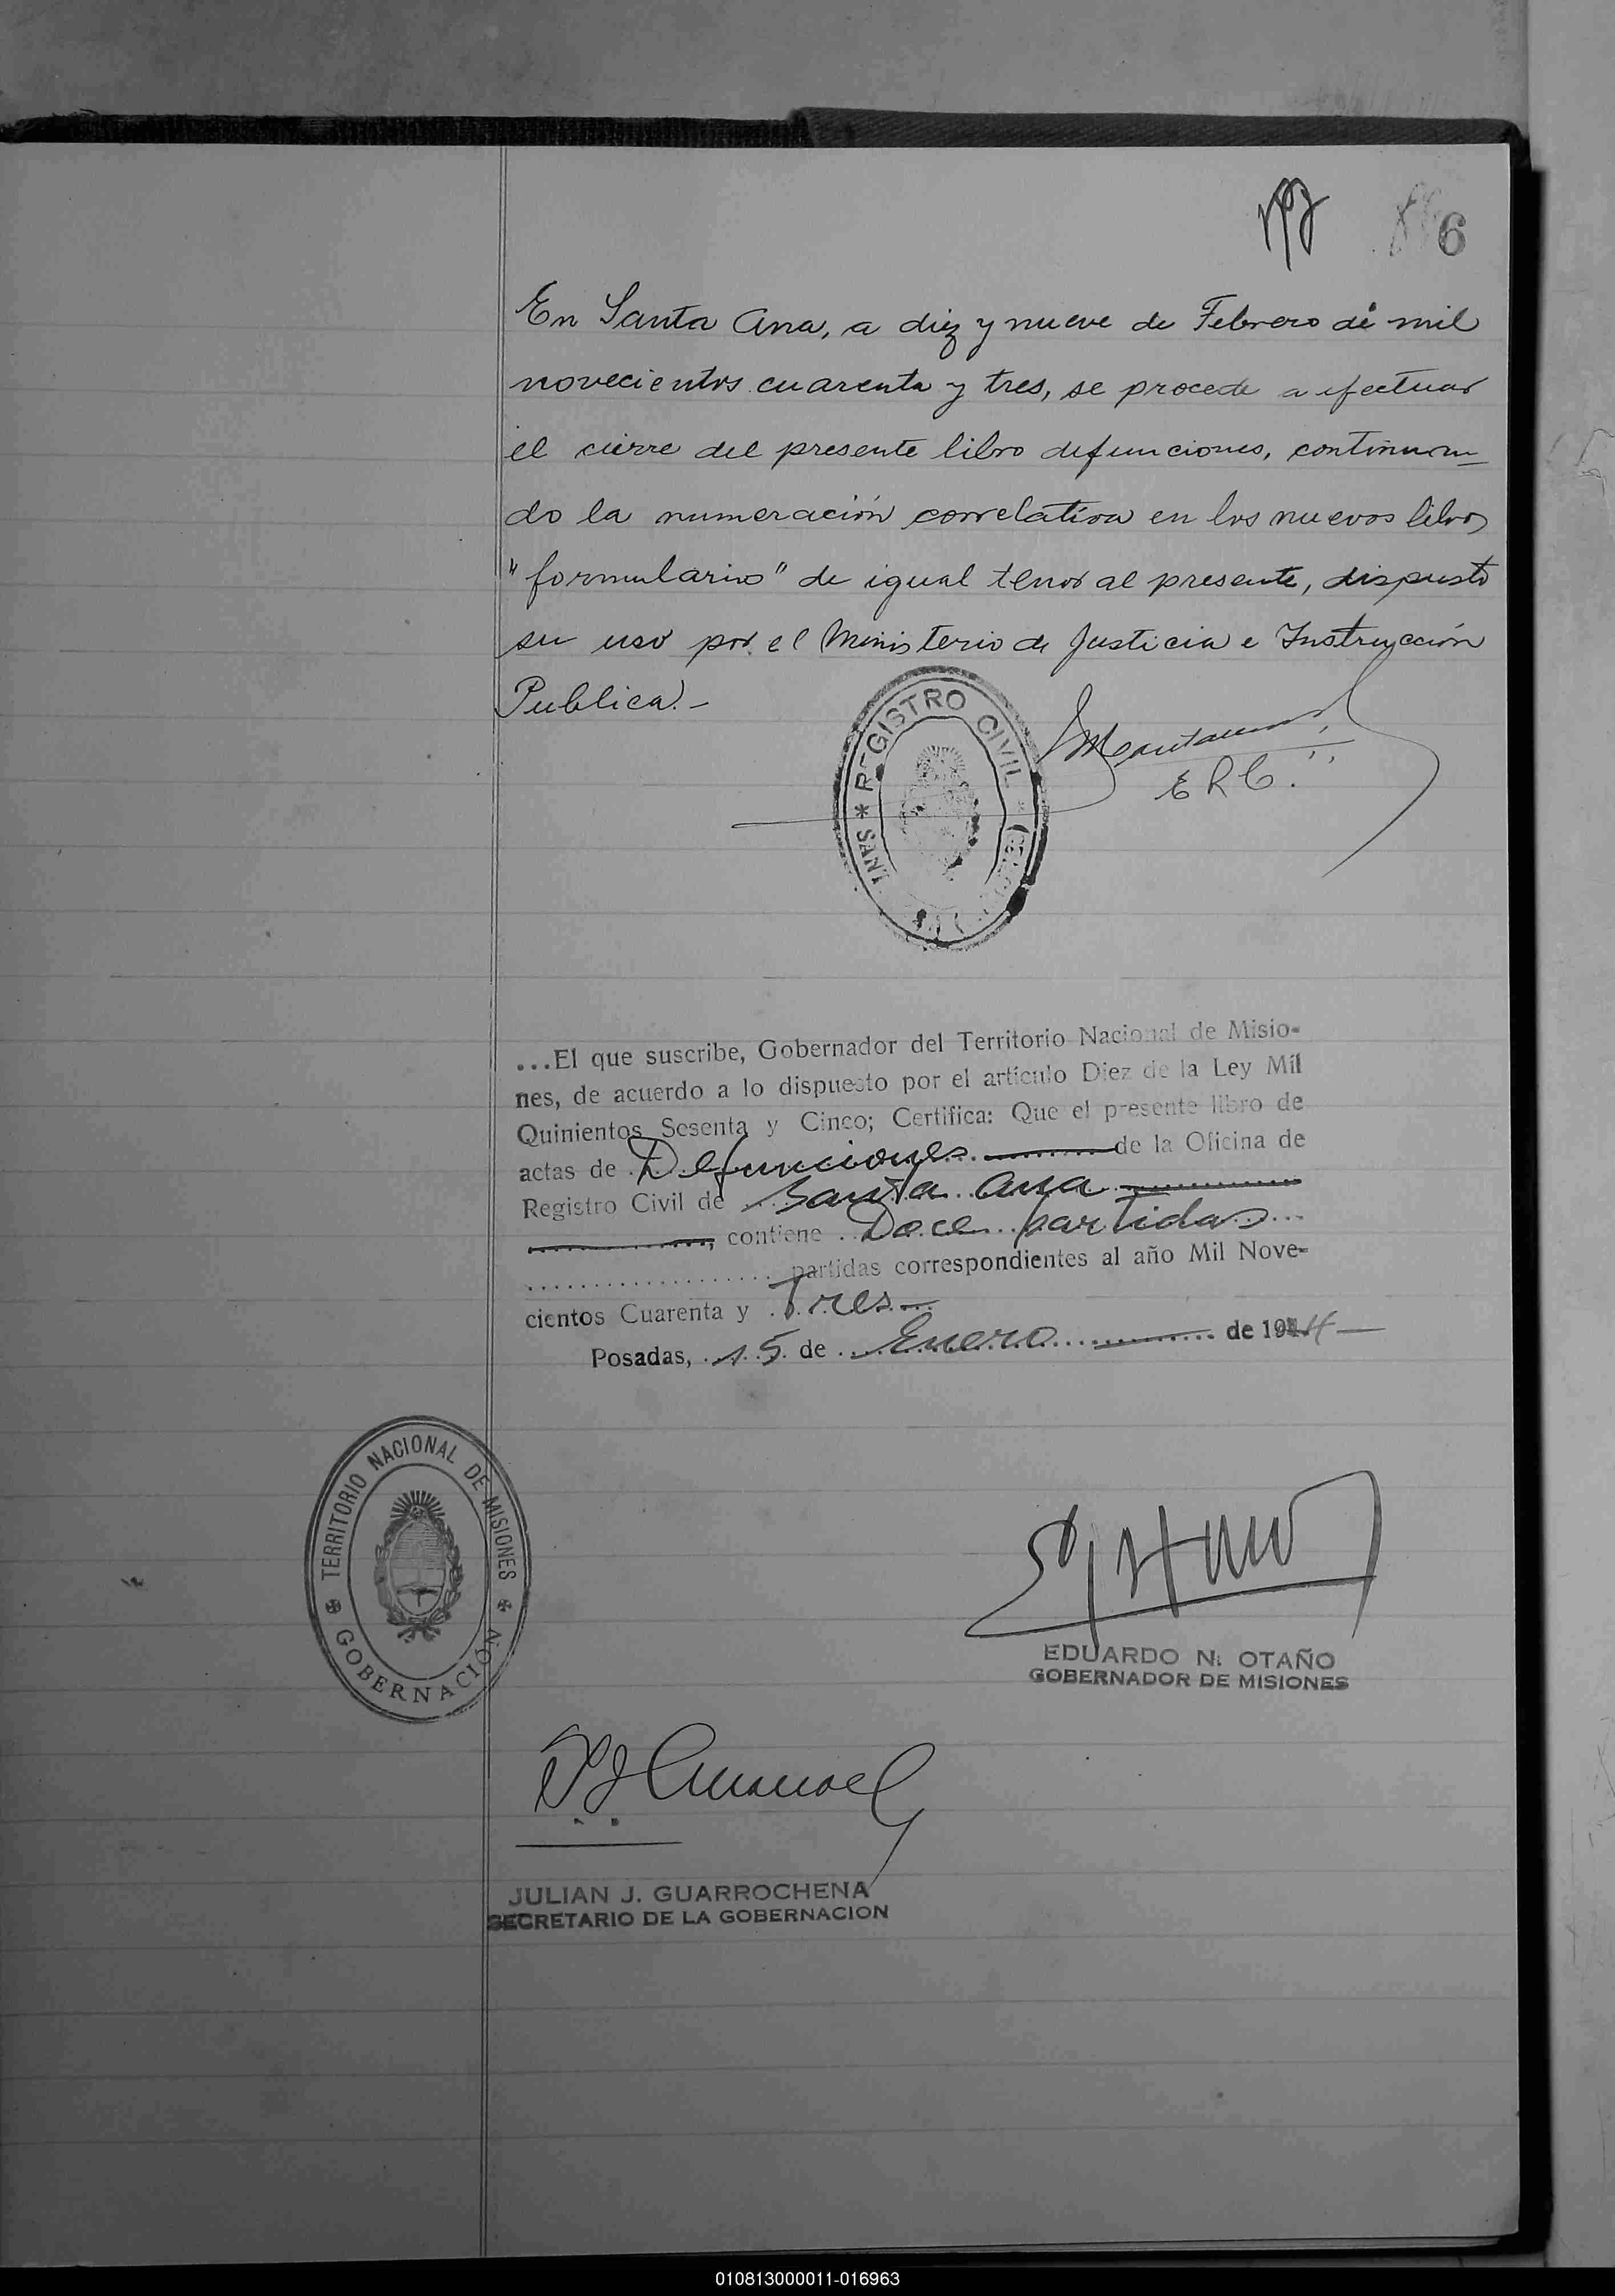 6
En Santa Ana, a diez y nueve de Febrero de mil
novecientos cuarenta y tres, se procede a efectuar
el cierre del presente libro defunciones, continuan-
do la numeración correlativa en los nuevos libros
"formularios" de igual tenor al presente, dispuesto
su uso por el Ministerio de Justicia e Instrucción
Publica.-
* REGISTRO CIVIL * SANT
E R C.
...El que suscribe, Gobernador del Territorio Nacional de Misio-
nes, de acuerdo a lo dispuesto por el artículo Diez de la Ley Mil
Quinientos Sesenta y Cinco; Certifica: Que el presente libro de
actas de Defunciones de la Oficina de
Registro Civil de Santa Ana
, contiene Doce partidas
partidas correspondientes al año Mil Nove-
cientos Cuarenta y Tres
Posadas, 15 de Enero de 1944
TERRITORIO NACIONAL DE MISIONES
GOBERNACIÓN
EDUARDO N. OTAÑO
GOBERNADOR DE MISIONES
JULIAN J. GUARROCHENA
SECRETARIO DE LA GOBERNACION
010813000011-016963